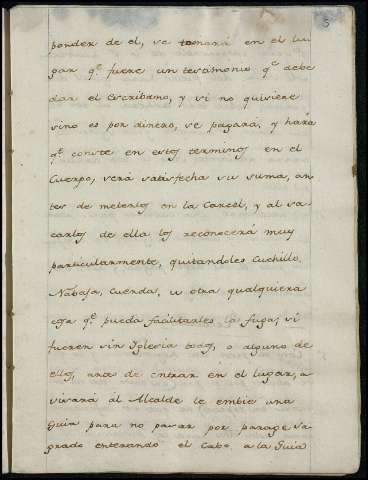 5
ponder de el, se tomará en el lu
gar qᵉ fuere un testimonio qᵉ debe
dar el Escribano, y si no quisiere
sino es por dinero, se pagará, y hará
qᵉ conste en estos terminos en el
Cuerpo, será satisfecha su suma, an
tes de meterlos en la Carcel, y al sa
carlos de ella los reconocerá muy
particularmente, quitandoles Cuchillo,
Nabaja, Cuerda, u otra qualquiera
cosa qᵉ pueda facilitarles la fuga, si
fueren sin Iglesia todos, o alguno de
ellos, antes de entrar en el lugar, a
visará al Alcalde le embie una
Guia para no pasar por parage sa
grado enterando el Cabo a la Guia